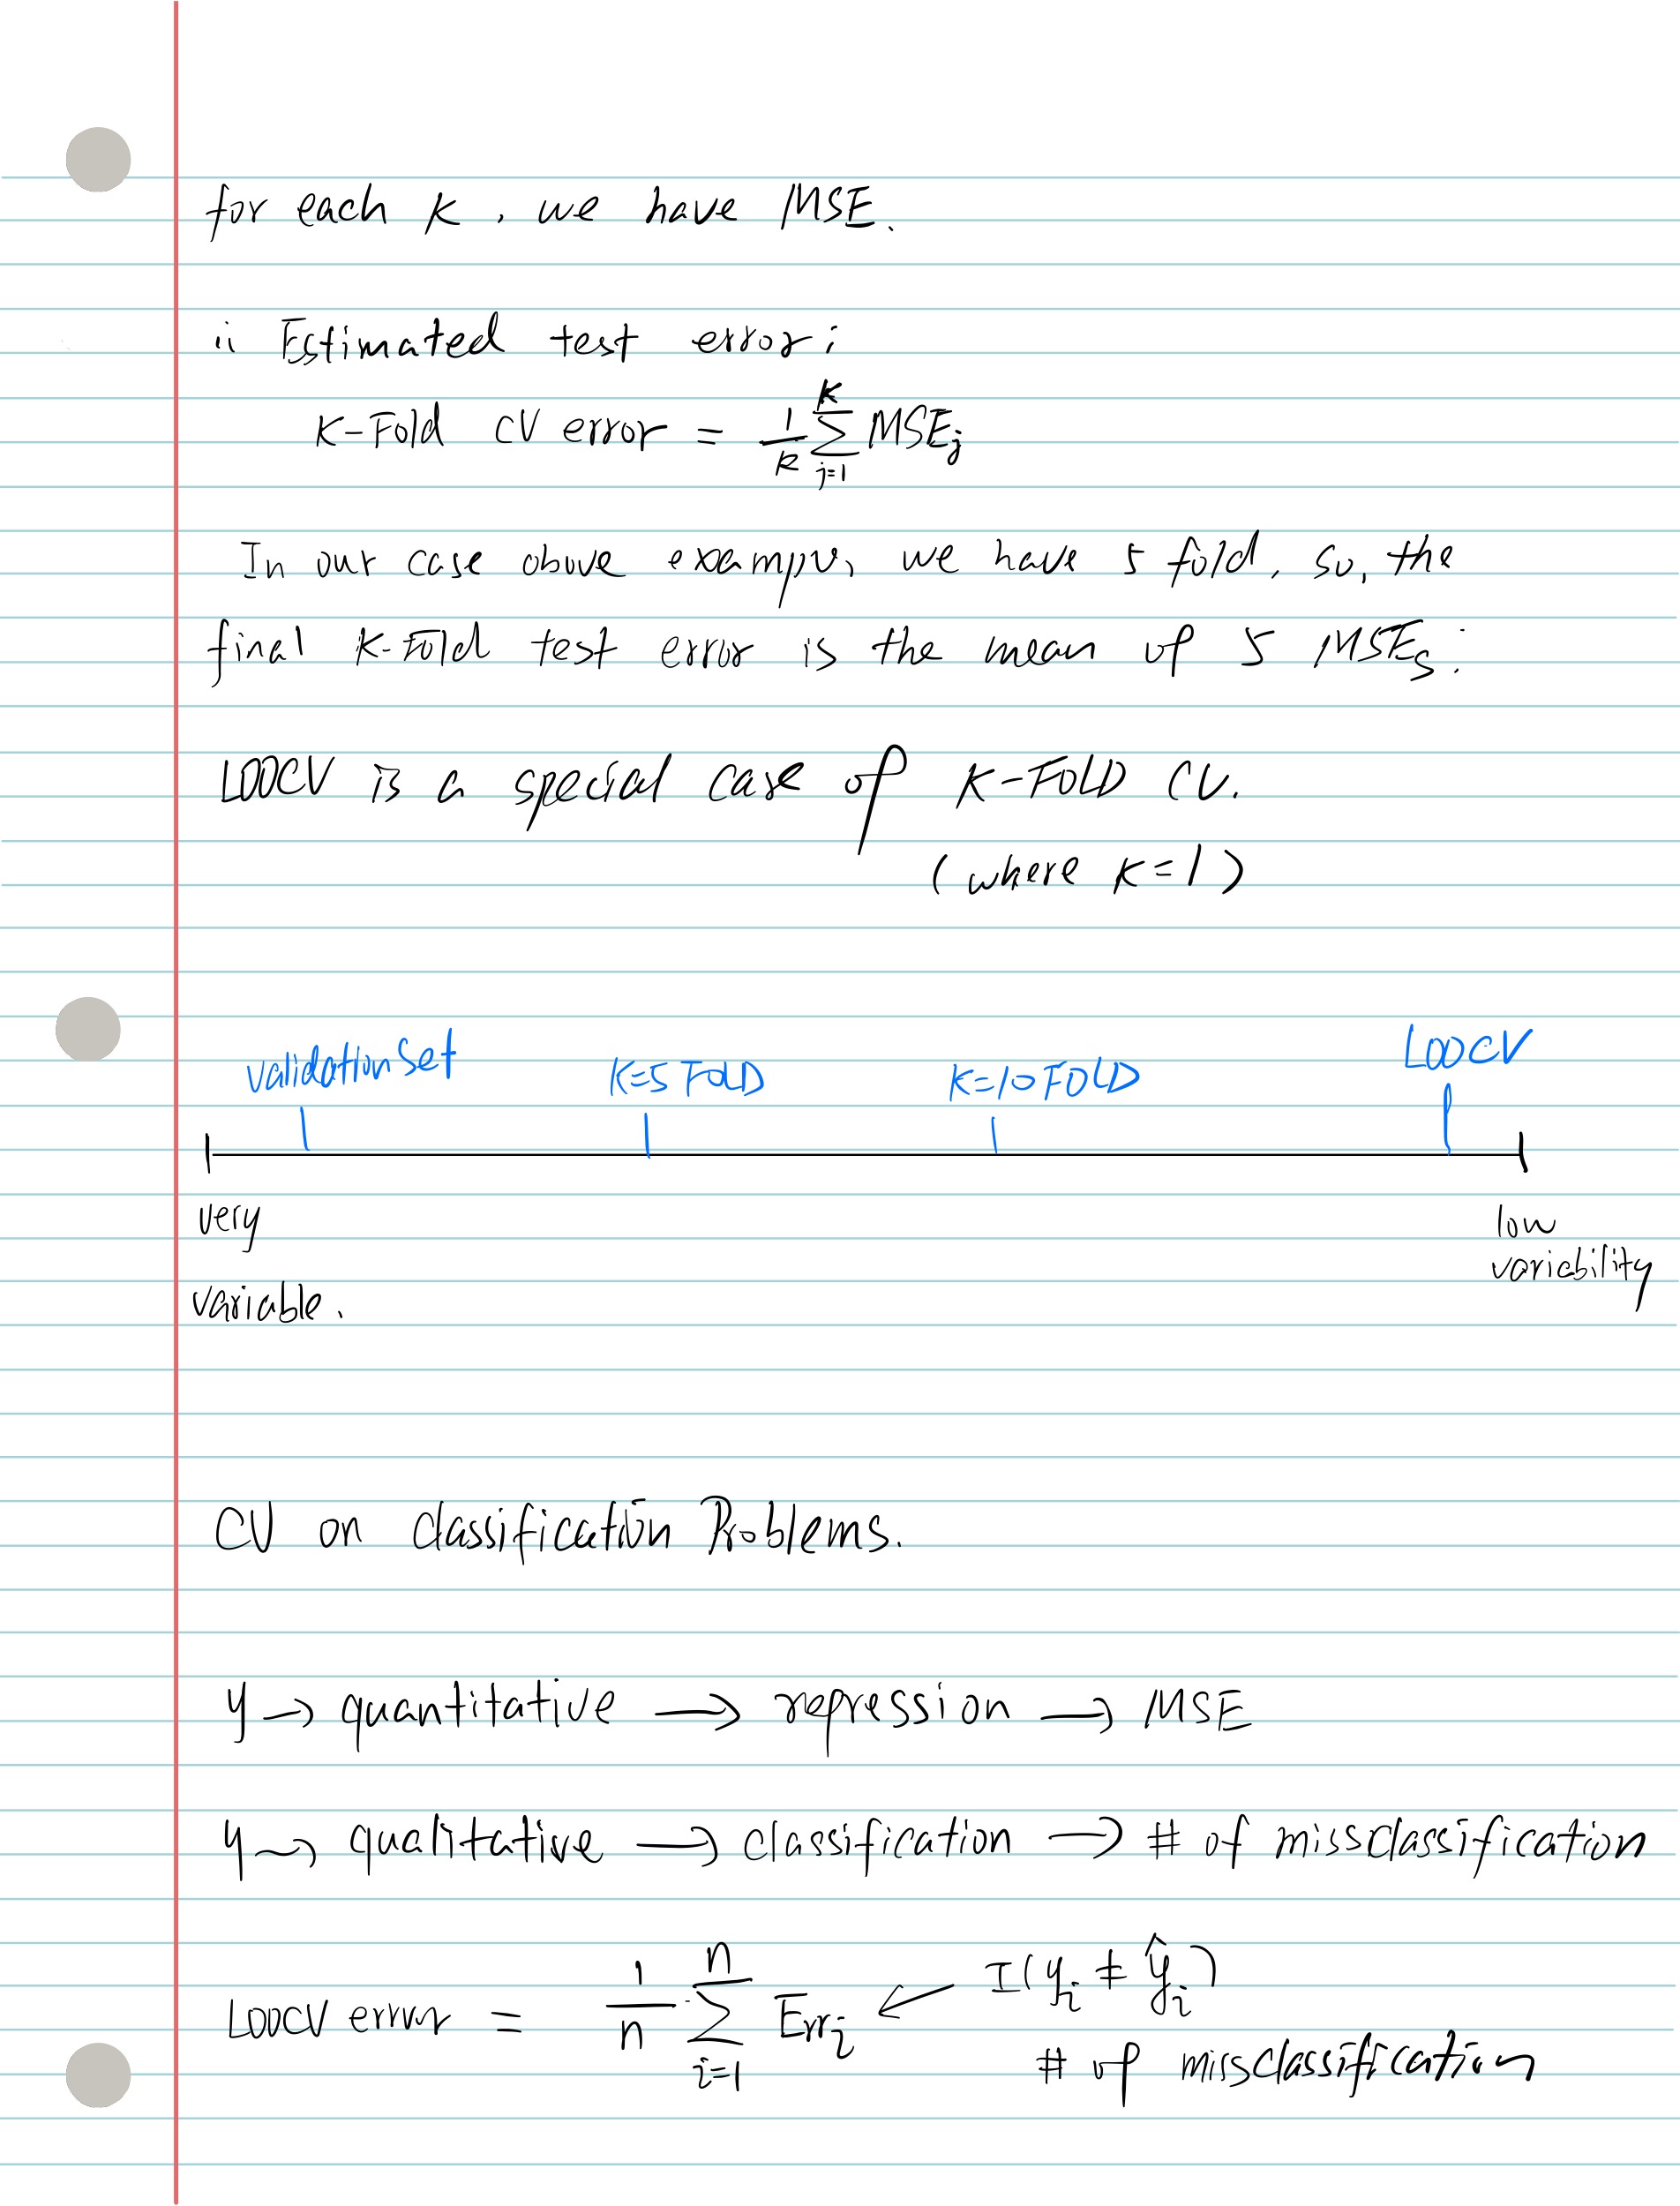 for each K, we have MSE.
ii Estimated test error:
K-Fold CV error = 1/k K∑j=1 MSEj
In our case above example, we have 5 fold, so, the
final K-Fold test error is the mean of 5 MSEs.
LOOCV is a special case of K-FOLD CV.
(where K=1)
validation Set K=5 FOLD K=10 FOLD LOOCV
very low
variability
variable.
CV on classification Problems.
y → quantitative → regression → MSE
y → qualitative → classification → # of missclassification
LOOCV error = 1/n n∑i=1 Erri ← I(yi ≠ ŷi)
# of missclassification